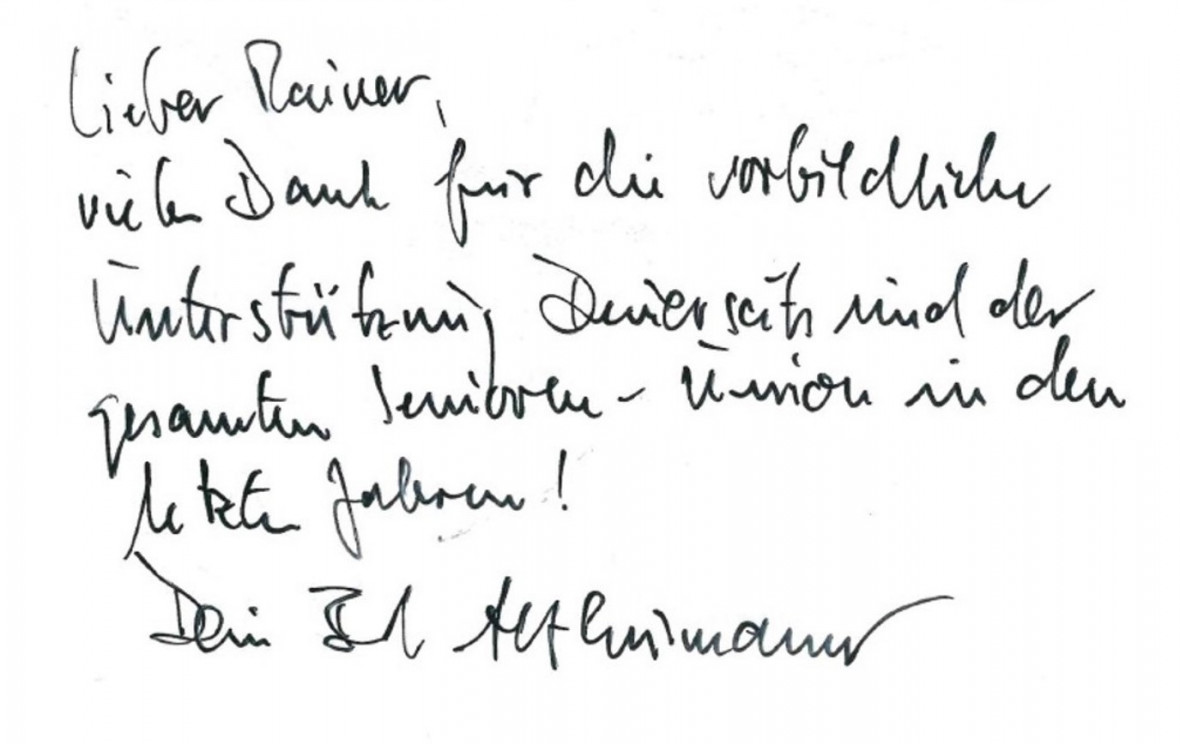 Lieber Rainer,
vielen Dank für die vorbildliche
Unterstützung Deinerseits und der
gesamten Senioren-Union in den
letzten Jahren!
Dein